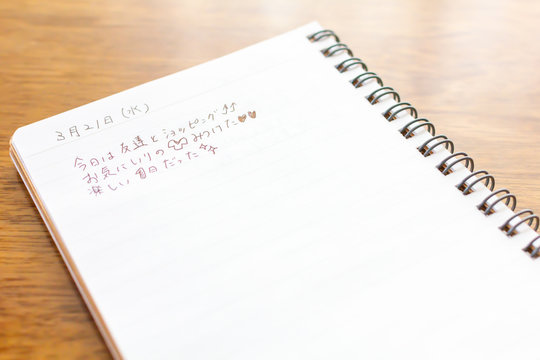 3月21日(水)
今日は友達とショッピング⇈
お気にいりの👕みつけた♥♥
楽しい1日だった☆☆